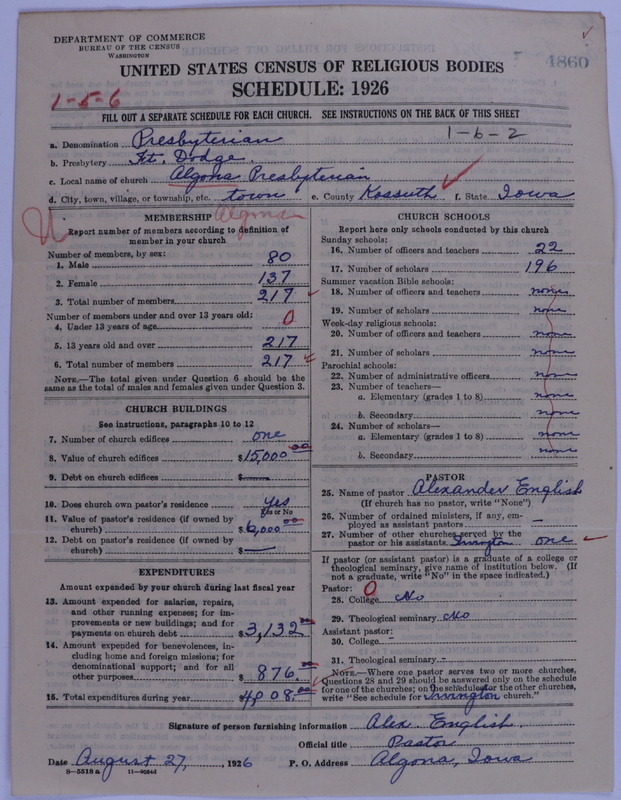 DEPARTMENT OF COMMERCE
BUREAU OF THE CENSUS
WASHINGTON
4860
UNITED STATES CENSUS OF RELIGIOUS BODIES
SCHEDULE: 1926
1-5-6
FILL OUT A SEPARATE SCHEDULE FOR EACH CHURCH. SEE INSTRUCTIONS ON THE BACK OF THIS SHEET
1-6-2
a. Denomination Presbyterian
b. Presbytery Ft. Dodge
c. Local name of church Algona Presbyterian
d. City, town, village, or township, etc. town e. County Kossuth f. State Iowa
Algona
MEMBERSHIP
Report number of members according to definition of member in your church
Number of members, by sex:
1. Male 80
2. Female 137
3. Total number of members 217
Number of members under and over 13 years old:
4. Under 13 years of age 0
5. 13 years old and over 217
6. Total number of members 217
NOTE.—The total given under Question 6 should be the
same as the total of males and females given under Question 3.
CHURCH BUILDINGS
See instructions, paragraphs 10 to 12
7. Number of church edifices one
8. Value of church edifices $15,000.00
9. Debt on church edifices $
10. Does church own pastor's residence Yes
Yes or No
11. Value of pastor's residence (if owned by
church) $6,000.00
12. Debt on pastor's residence (if owned by
church) $
EXPENDITURES
Amount expended by your church during last fiscal year
13. Amount expended for salaries, repairs,
and other running expenses; for im-
provements or new buildings; and for
payments on church debt $3,132.00
14. Amount expended for benevolences, in-
cluding home and foreign missions; for
denominational support; and for all
other purposes $876.00
15. Total expenditures during year $4,008.00
CHURCH SCHOOLS
Report here only schools conducted by this church
Sunday schools:
16. Number of officers and teachers 22
17. Number of scholars 196
Summer vacation Bible schools:
18. Number of officers and teachers none
19. Number of scholars none
Week-day religious schools:
20. Number of officers and teachers none
21. Number of scholars none
Parochial schools:
22. Number of administrative officers none
23. Number of teachers—
a. Elementary (grades 1 to 8) none
b. Secondary none
24. Number of scholars—
a. Elementary (grades 1 to 8) none
b. Secondary none
PASTOR
25. Name of pastor Alexander English
(If church has no pastor, write "None")
26. Number of ordained ministers, if any, em-
ployed as assistant pastors —
27. Number of other churches served by the
pastor or his assistants Irvington one
If pastor (or assistant pastor) is a graduate of a college or
theological seminary, give name of institution below. (If
not a graduate, write "No" in the space indicated.)
Pastor: 0
28. College No
29. Theological seminary No
Assistant pastor:
30. College -
31. Theological seminary -
NOTE.—Where one pastor serves two or more churches,
Questions 28 and 29 should be answered only on the schedule
for one of the churches; on the schedule for the other churches,
write "See schedule for Irvington church."
Signature of person furnishing information Alex. English
Official title Pastor
Date August 27, 1926 P. O. Address Algona, Iowa
8—5518 a